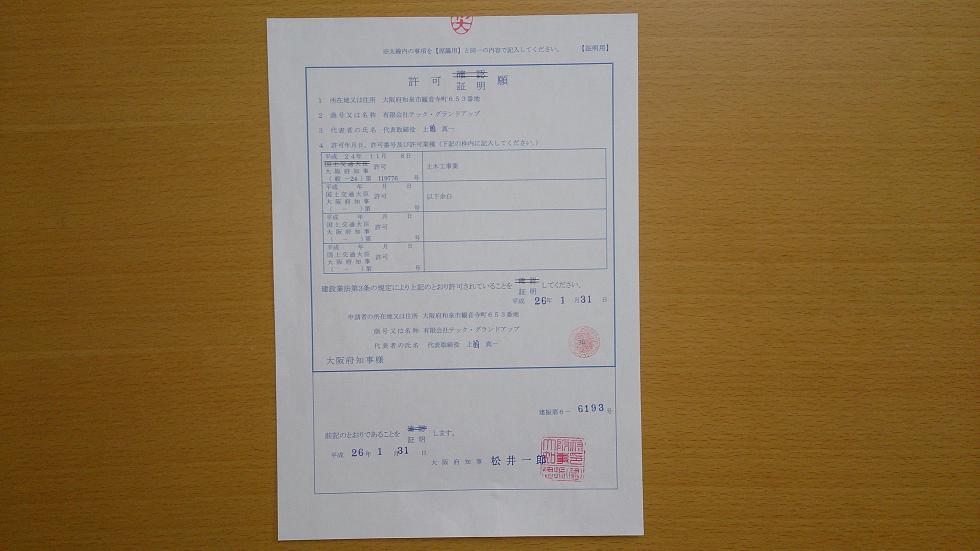 ※太線内の事項を【原議用】と同一の内容で記入してください。 【証明用】
許可 確認 証明 願
1 所在地又は住所 大阪府和泉市観音寺町653番地
2 商号又は名称 有限会社テック・グランドアップ
3 代表者の氏名 代表取締役 上 真一
4 許可年月日、許可番号及び許可業種(下記の枠内に記入してください。)
平成 24年 11月 8日
国土交通大臣
大阪府知事 許可
(般-24)第 119776 号
土木工事業
平成 年 月 日
国土交通大臣
大阪府知事 許可
( - )第 号
以下余白
平成 年 月 日
国土交通大臣
大阪府知事 許可
( - )第 号
平成 年 月 日
国土交通大臣
大阪府知事 許可
( - )第 号
建設業法第3条の規定により上記のとおり許可されていることを 確認 証明 してください。
平成 26年 1月 31日
申請者の所在地又は住所 大阪府和泉市観音寺町653番地
商号又は名称 有限会社テック・グランドアップ
代表者の氏名 代表取締役 上 真一
大阪府知事様
建振第6- 6193号
前記のとおりであることを 確認 証明 します。
平成 26年 1月 31日
大阪府知事 松井一郎